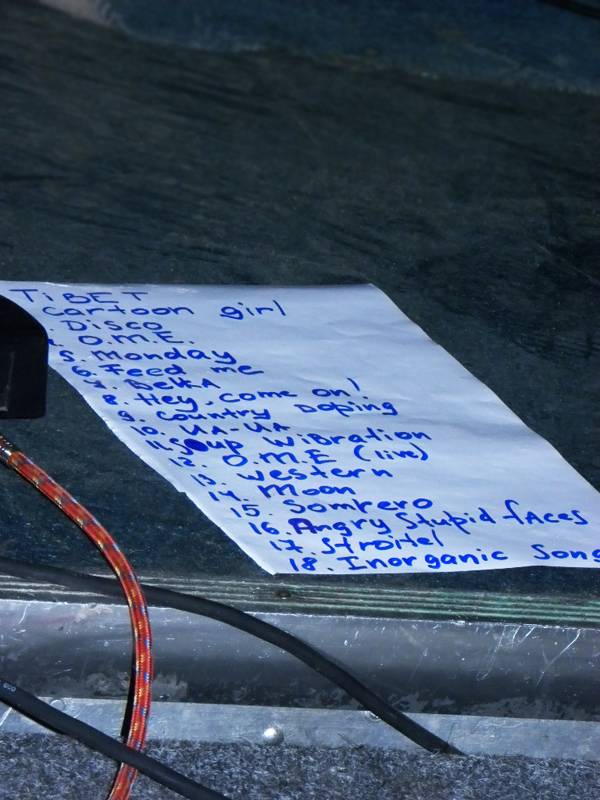 TiBET
Cartoon girl
Disco
O.M.E.
5. Monday
6. Feed me
7. BelkA
8. Hey, come on!
9. Country Doping
10. UA-UA
11. Soup WiBration
12. O.M.E (live)
13. western
14. Moon
15. Sombrero
16. Angry Stupid fAces
17. Stroitel
18. Inorganic Song